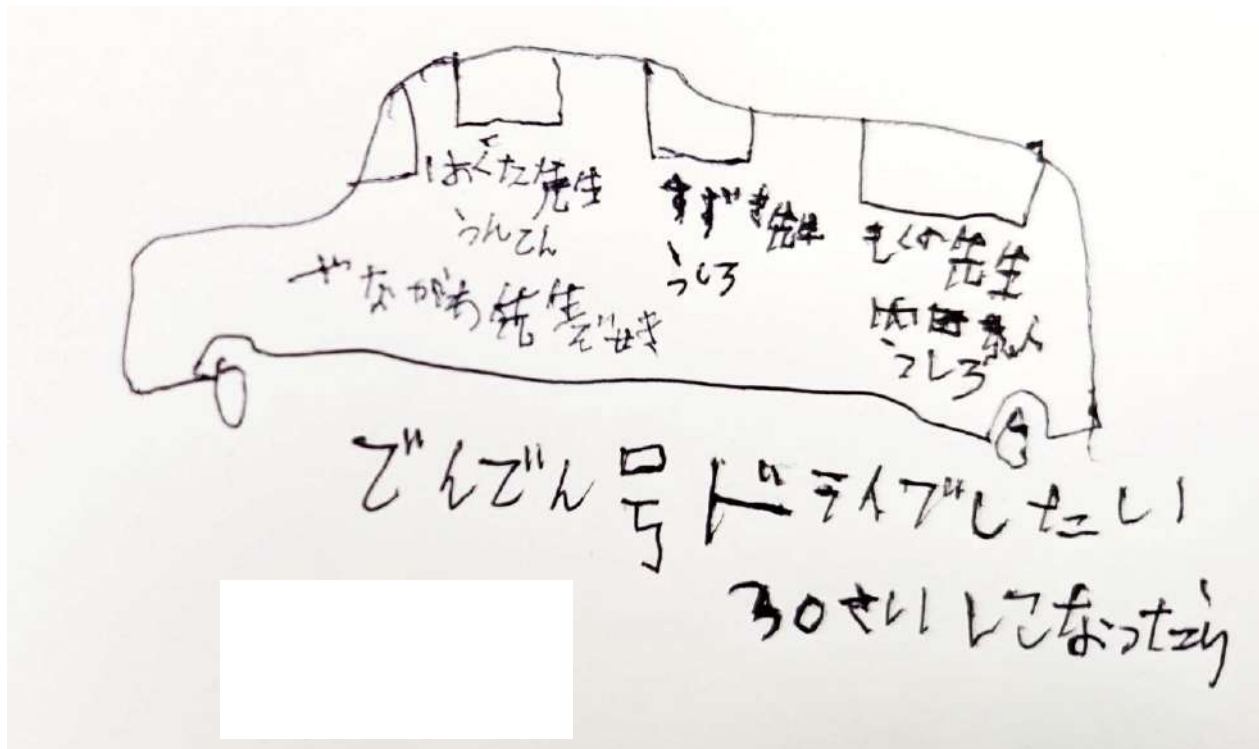 おくた先生
うんてん
やながわ先生
すずき先生
うしろ
先生
うしろ
でんでん号ドライブしたい
30さいになったら